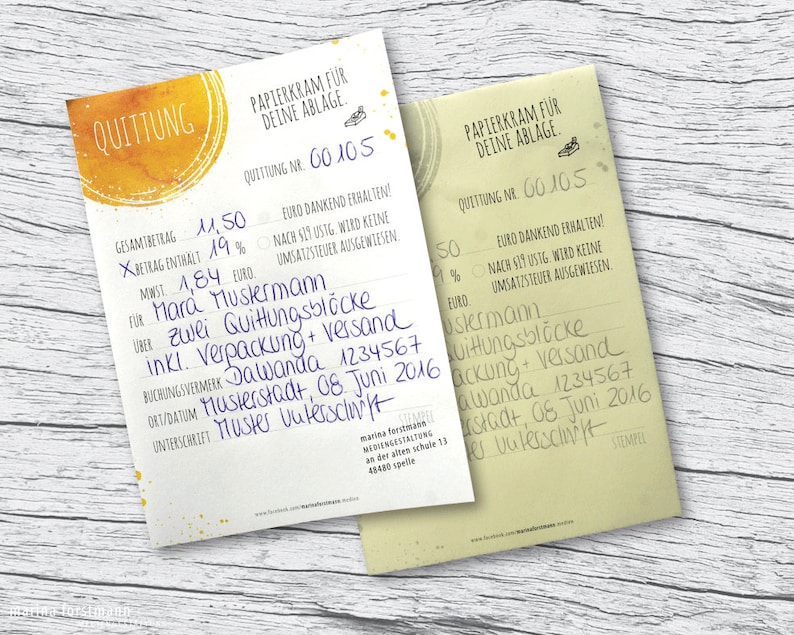 QUITTUNG
PAPIERKRAM FÜR
DEINE ABLAGE.
QUITTUNG NR. 00105
GESAMTBETRAG 11,50 EURO DANKEND ERHALTEN!
X BETRAG ENTHÄLT 19 % NACH §19 USTG. WIRD KEINE
MWST. 1,84 EURO. UMSATZSTEUER AUSGEWIESEN.
FÜR Mara Mustermann
ÜBER zwei Quittungsblöcke
inkl. Verpackung + Versand
BUCHUNGSVERMERK DaWanda 1234567
ORT/DATUM Musterstadt, 08. Juni 2016
UNTERSCHRIFT Muster Unterschrift
STEMPEL
marina forstmann
MEDIENGESTALTUNG
an der alten schule 13
48480 spelle
www.facebook.com/marinaforstmann.medien
PAPIERKRAM FÜR
DEINE ABLAGE.
QUITTUNG NR. 00105
50 EURO DANKEND ERHALTEN!
9 % NACH §19 USTG. WIRD KEINE
EURO. UMSATZSTEUER AUSGEWIESEN.
ustermann
uittungsblöcke
ackung + Versand
Wanda 1234567
stadt, 08. Juni 2016
er Unterschrift
STEMPEL
www.facebook.com/marinaforstmann.medien
marina forstmann